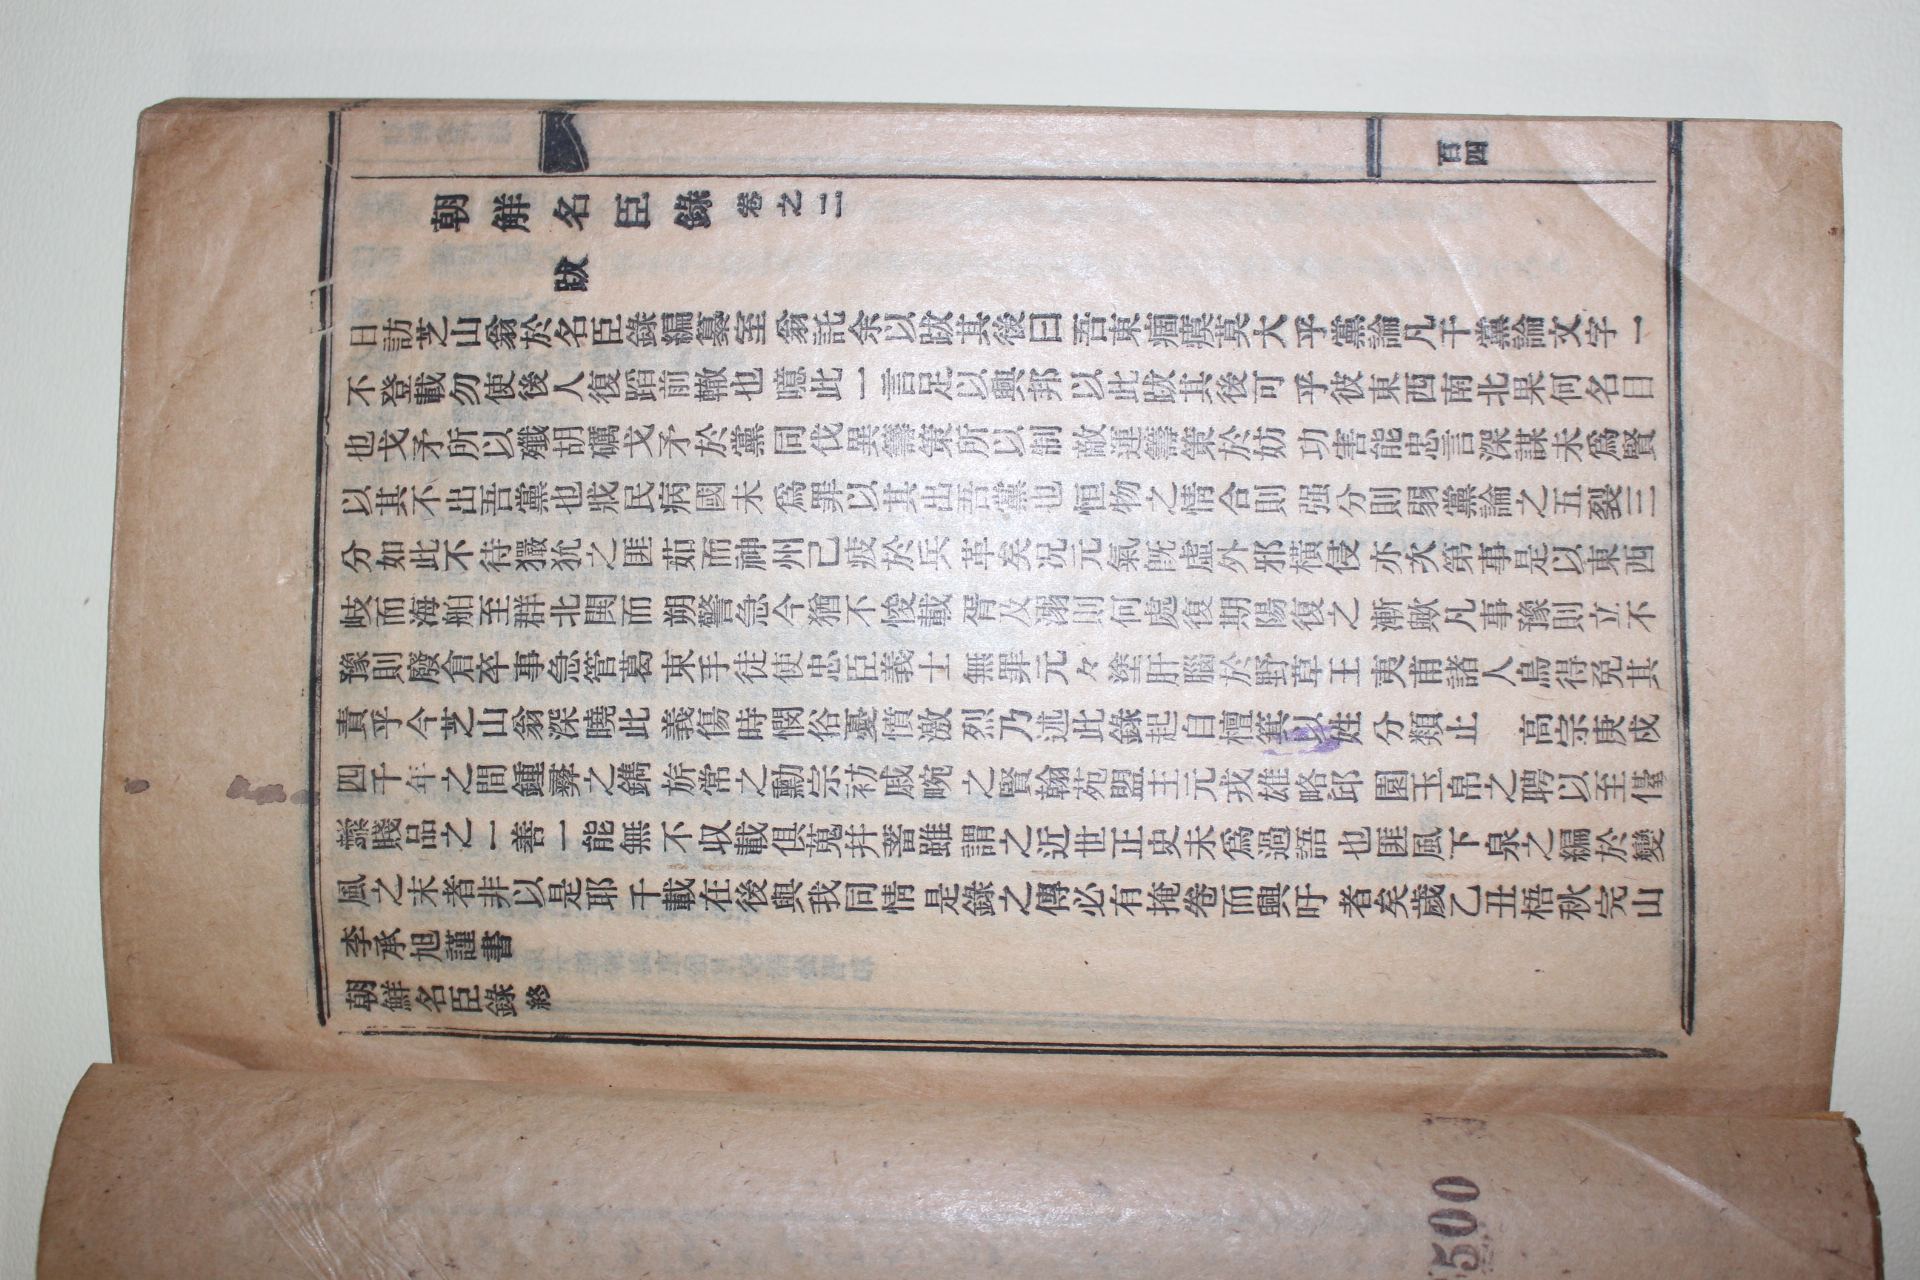 百四
朝鮮名臣錄卷之二
跋
日訪芝山翁於名臣錄編纂室翁託余以跋其後曰吾東痼瘼莫大乎黨論凡干黨論文字一
不登載勿使後人復蹈前轍也噫此一言足以興邦以此跋其後可乎彼東西南北果何名曰
也戈矛所以殲胡礪戈矛於黨同伐異籌策所以制敵運籌策於妨功害能忠言深謀未爲賢
以其不出吾黨也戕民病國未爲罪以其出吾黨也恒物之情合則强分則弱黨論之五裂三
分如此不待玁狁之匪茹而神州已疲於兵革矣况元氣旣虛外邪橫侵亦次第事是以東西
岐而海舶至群北閧而朔警急今猶不悛載胥及溺則何處復期陽復之漸歟凡事豫則立不
豫則廢倉卒事急管葛束手徒使忠臣義士無罪元々塗肝腦於野草王夷甫諸人烏得免其
責乎今芝山翁深曉此義傷時憫俗憂憤激烈乃述此錄起自檀箕以姓分類止 高宗庚戍
四千年之間鍾彛之鐫旂常之勳宗礽戚畹之賢翰苑盟主元戎雄略邱園玉帛之聘以至僮
賤品之一善一能無不収載俱蒐幷蓄雖謂之近世正史未爲過語也匪風下泉之編於變
風之末者非以是耶千載在後與我同情是錄之傳必有掩卷而興吁者矣歲乙丑梧秋完山
李承旭謹書
朝鮮名臣錄終
500